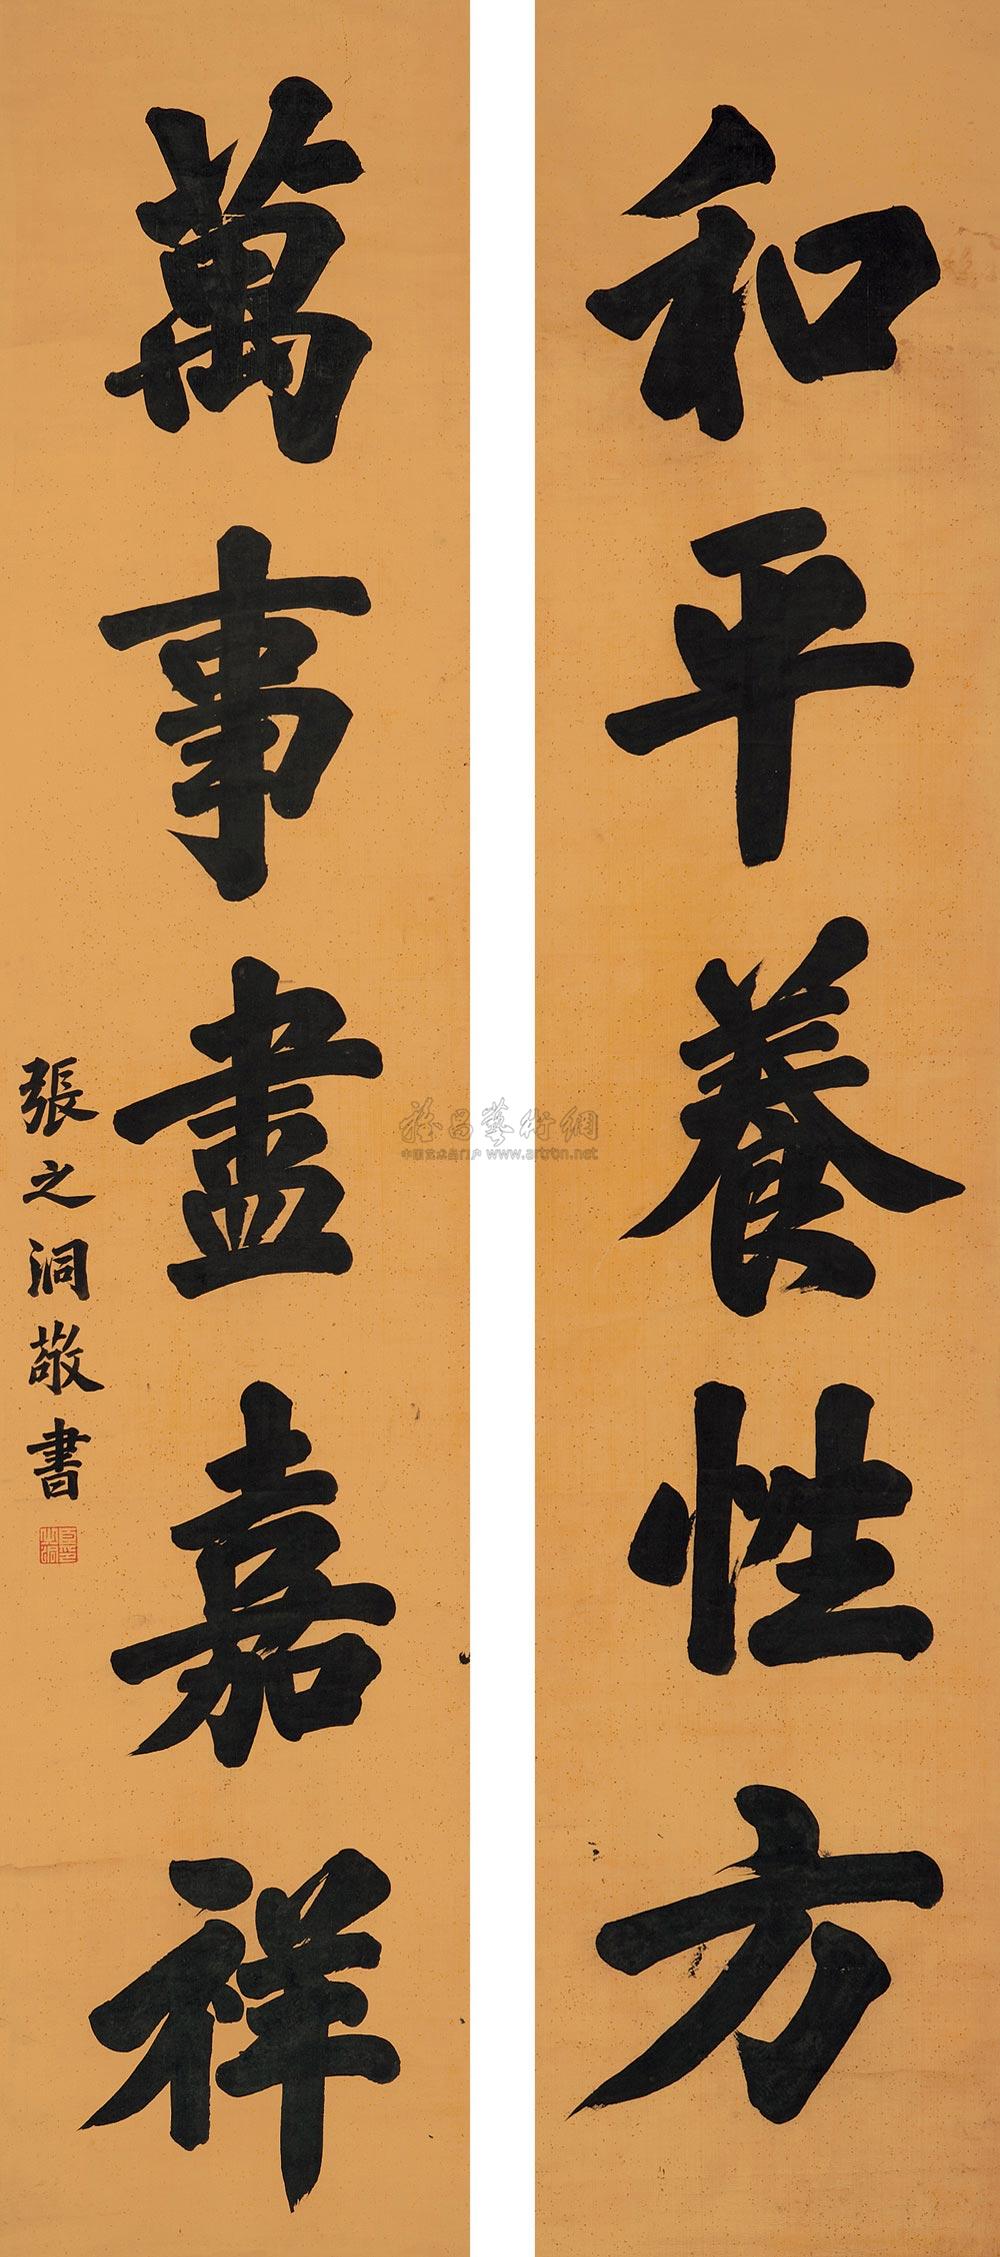 和平養性方
萬事盡嘉祥
張之洞敬書
雅昌藝術網
中国艺术品门户 www.artron.net